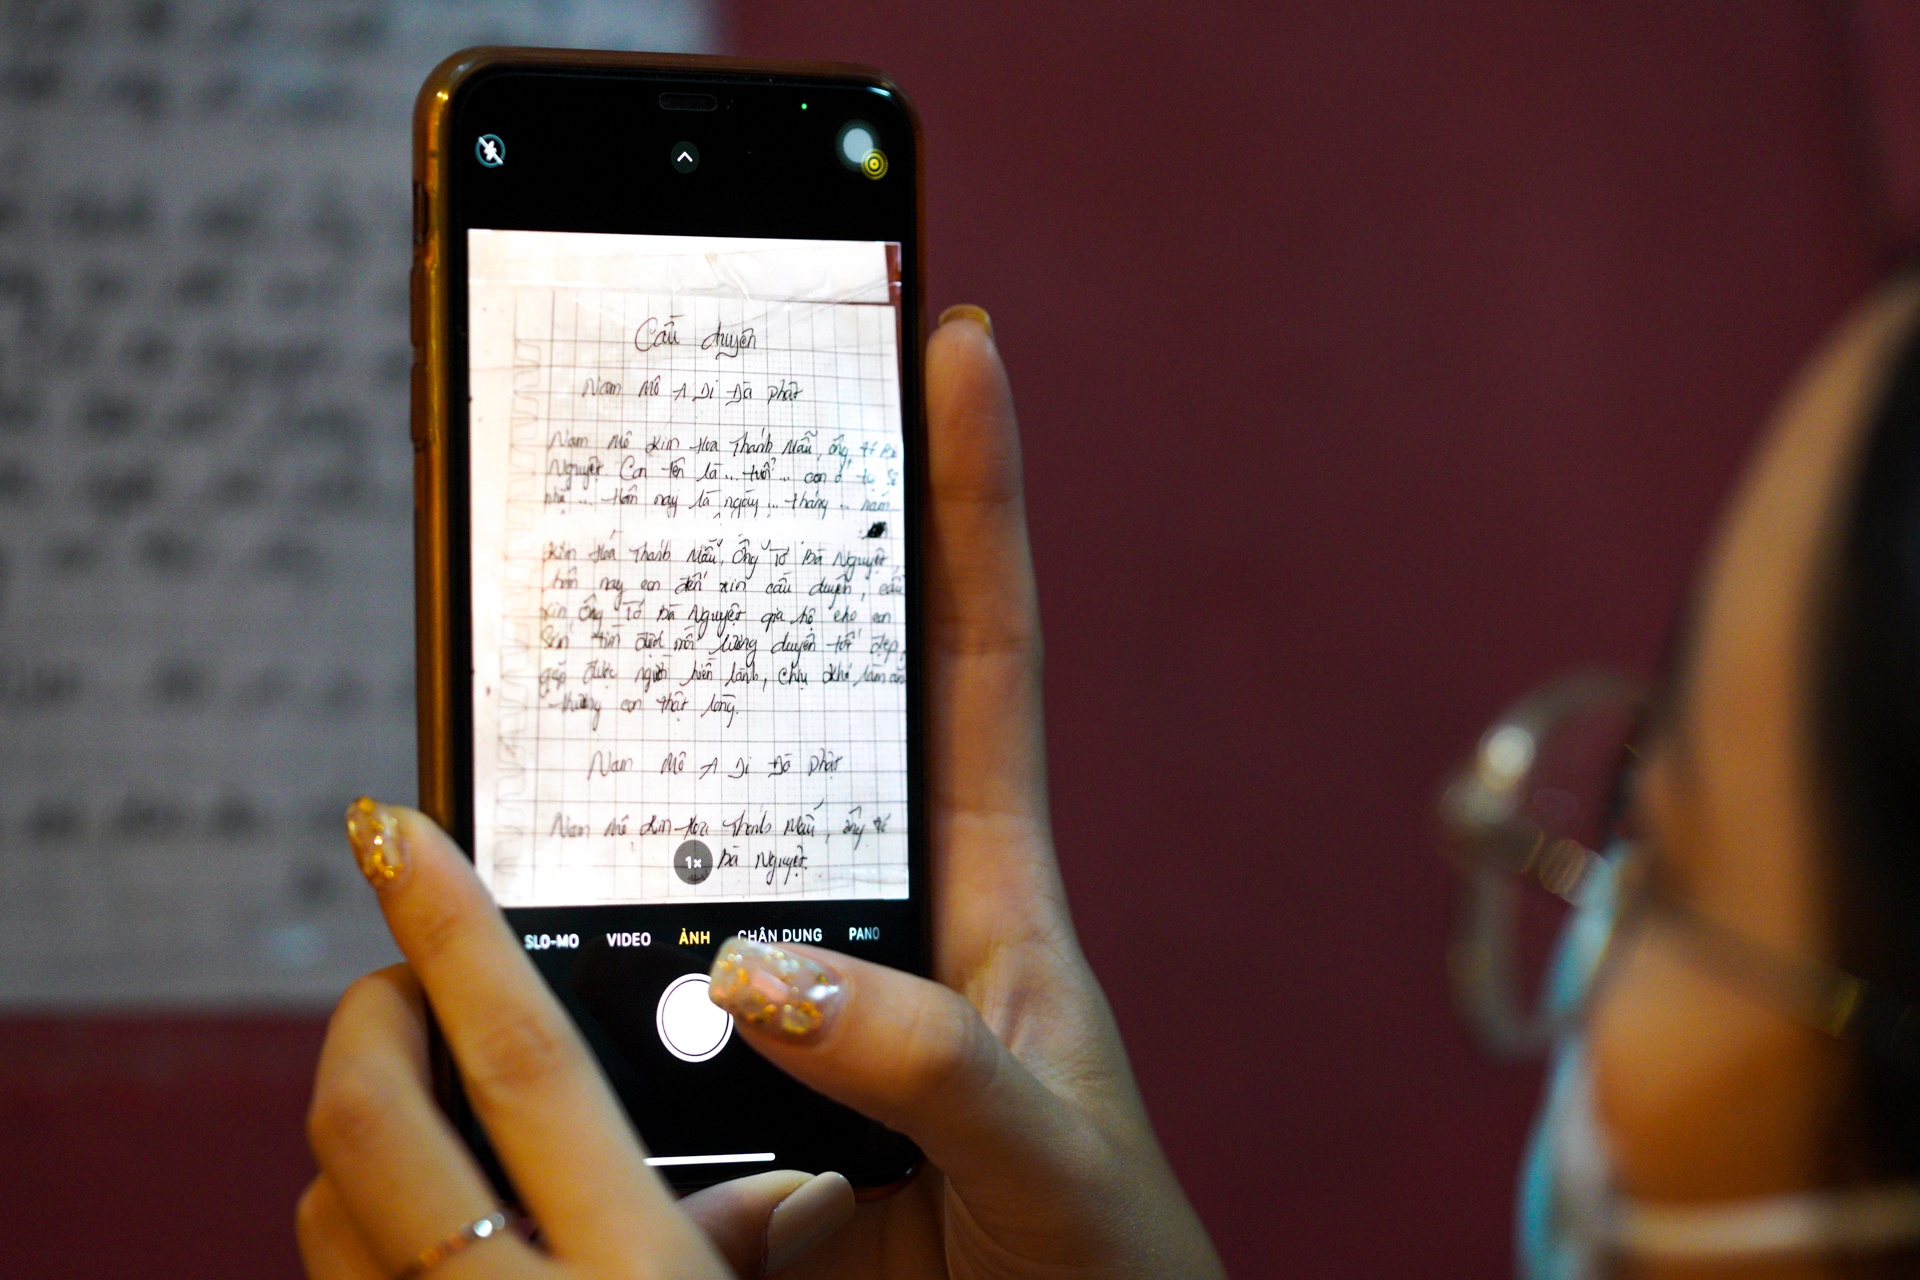 Cầu duyên
Nam Mô A Di Đà Phật
Nam Mô Kim Hoa Thánh Mẫu, ông tơ Bà
Nguyệt. Con tên là... tuổi... con ở tại số
nhà... Hôm nay là ngày... tháng... năm
Kim Hoa Thánh Mẫu, Ông Tơ Bà Nguyệt
hôm nay con đến xin cầu duyên, cầu
xin Ông Tơ Bà Nguyệt gia hộ cho con
Sớm tìm được mối lương duyên tốt đẹp,
gặp được người hiền lành, chịu khó làm ăn
thương con thật lòng.
Nam Mô A Di Đà Phật
Nam Mô Kim Hoa Thánh Mẫu, ông tơ
1x Bà Nguyệt.
SLO-MO VIDEO ẢNH CHÂN DUNG PANO